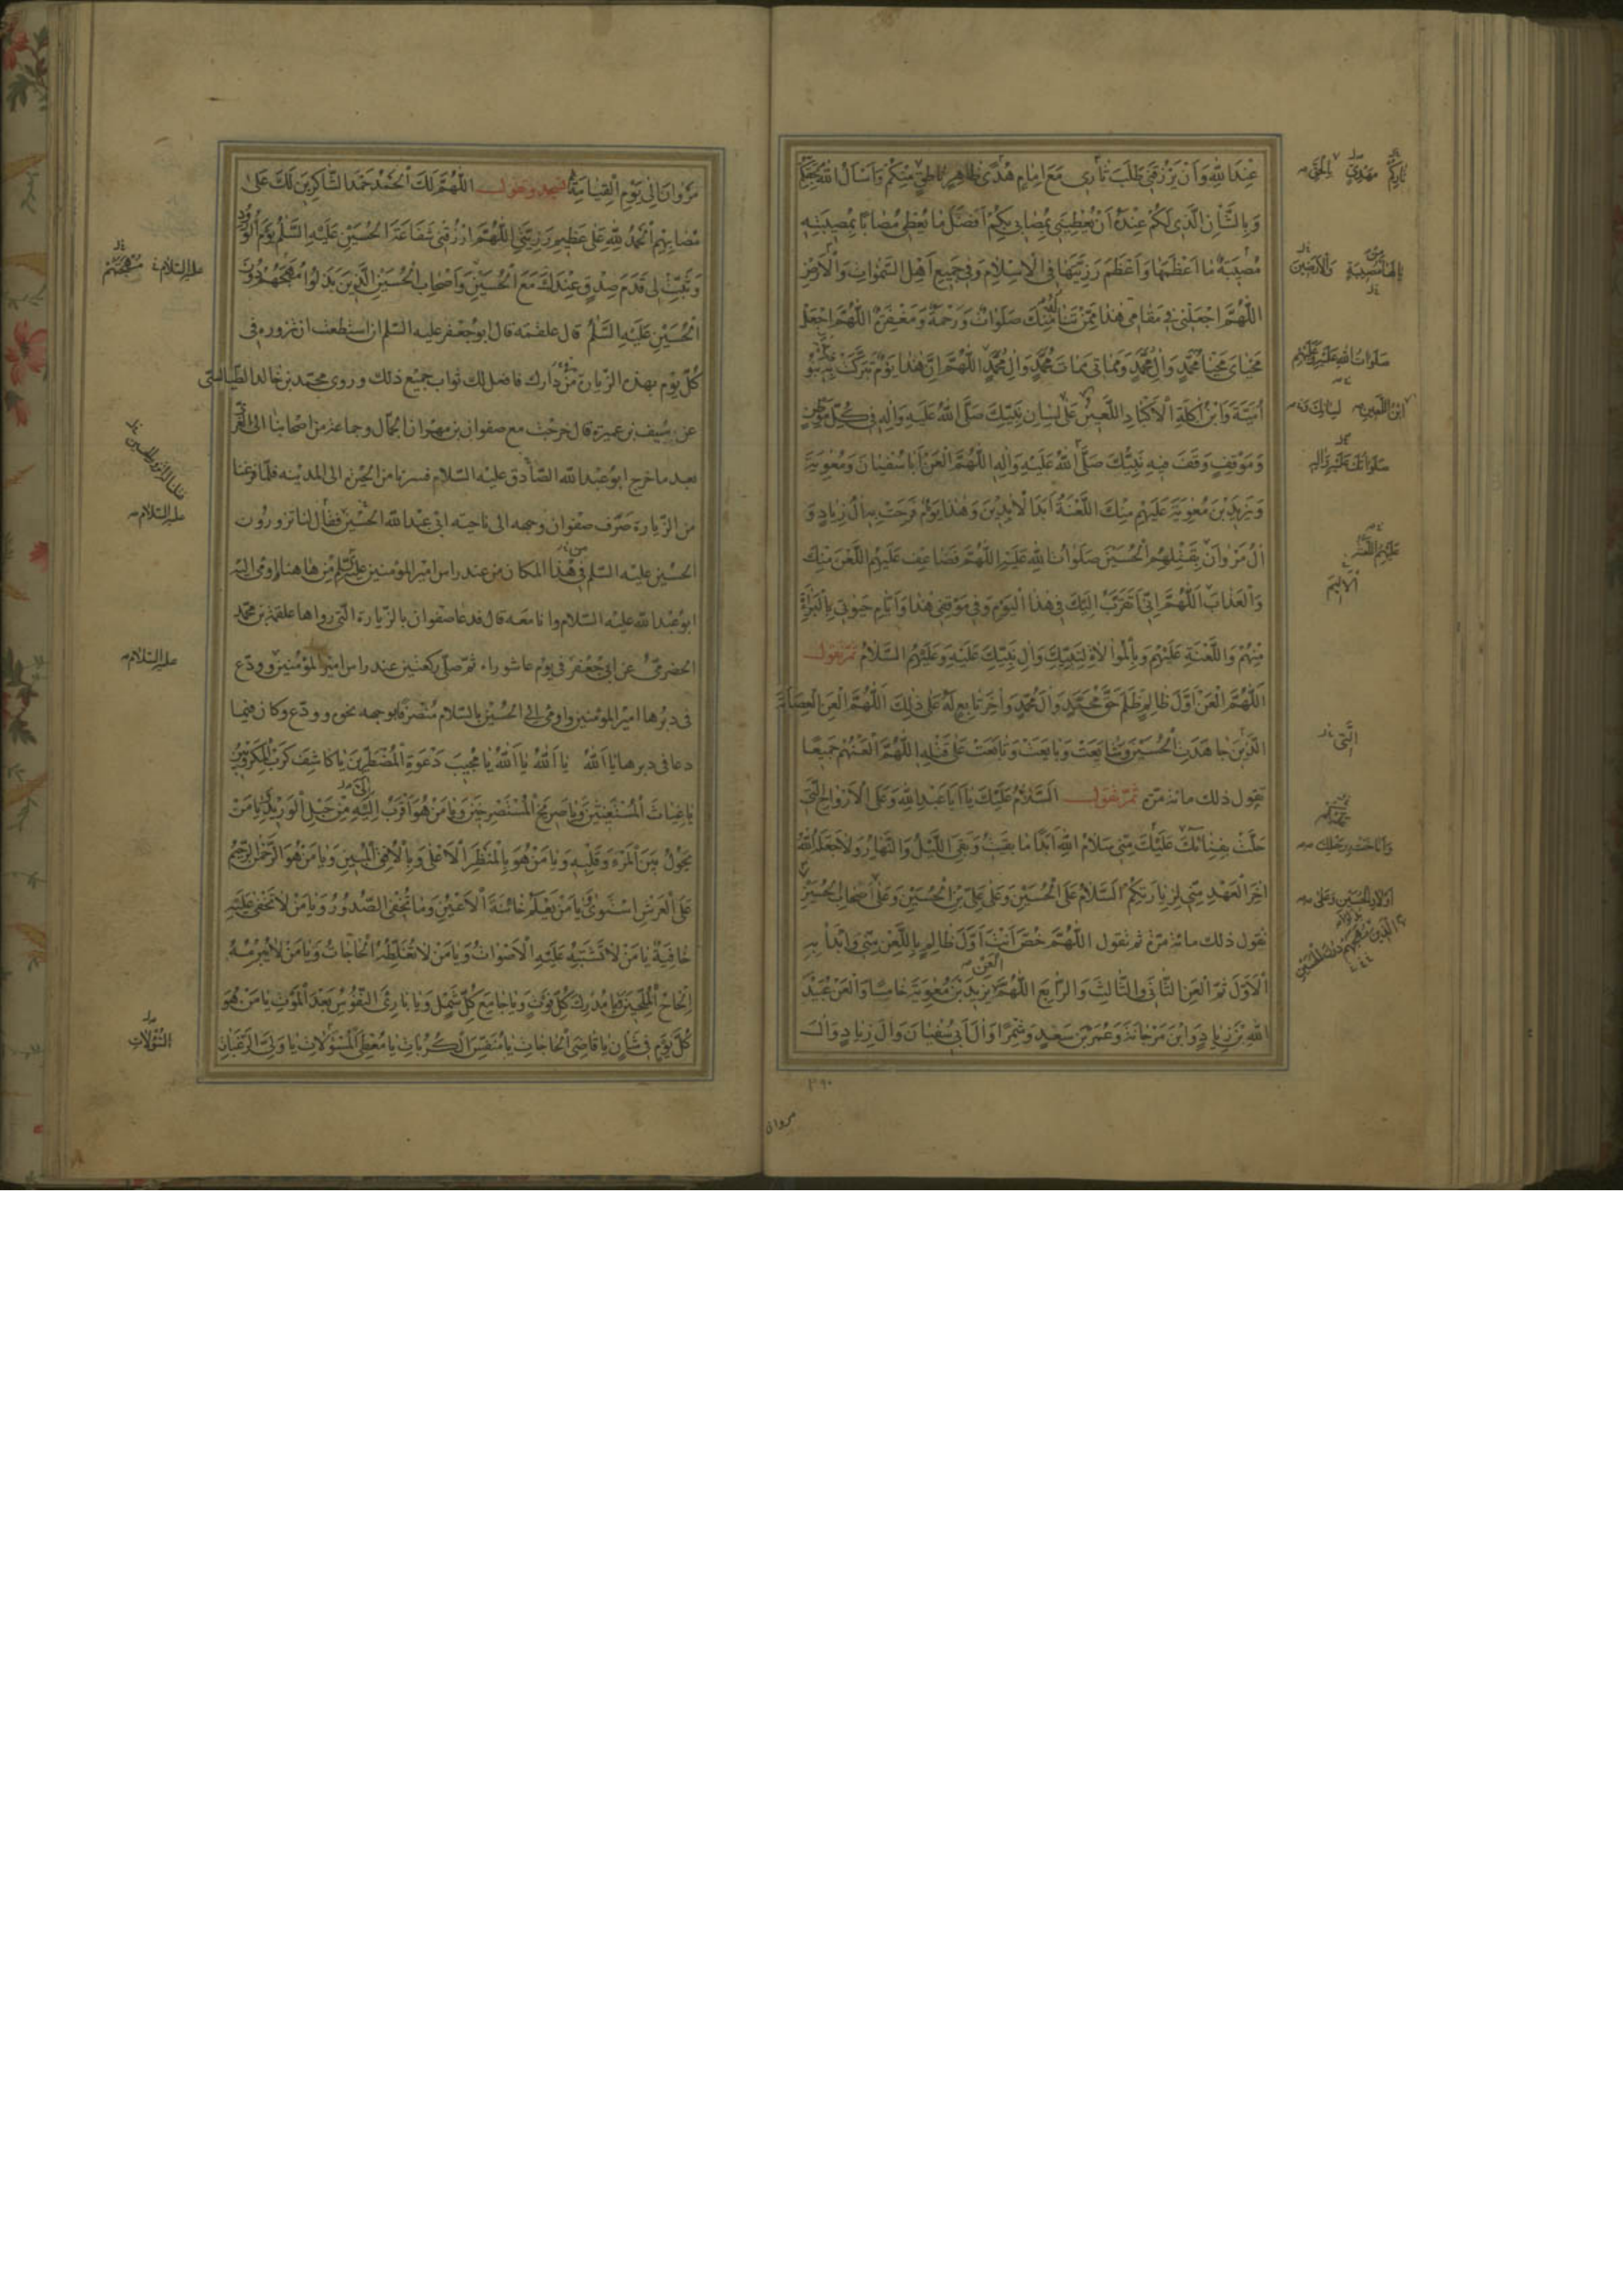 عِنْدَ اللهِ وَاَنْ يَرْزُقَنِي طَلَبَ ثَارِي مَعَ اِمَامِ هُدًى ظَاهِرٍ نَاطِقٍ مِنْكُمْ وَاَسْأَلُ اللهَ بِحَقِّكُمْ
وَبِالشَّأْنِ الَّذِي لَكُمْ عِنْدَهُ اَنْ يُعْطِيَنِي بِمُصَابِي بِكُمْ اَفْضَلَ مَا يُعْطِي مُصَابًا بِمُصِيبَتِهِ
مُصِيبَةً مَا اَعْظَمَهَا وَاَعْظَمَ رَزِيَّتَهَا فِي الْاِسْلَامِ وَفِي جَمِيعِ اَهْلِ السَّمٰوَاتِ وَالْاَرْضِ
اَللّٰهُمَّ اجْعَلْنِي فِي مَقَامِي هٰذَا مِمَّنْ تَنَالُهُ مِنْكَ صَلَوَاتٌ وَرَحْمَةٌ وَمَغْفِرَةٌ اَللّٰهُمَّ اجْعَلْ
مَحْيَايَ مَحْيَا مُحَمَّدٍ وَآلِ مُحَمَّدٍ وَمَمَاتِي مَمَاتَ مُحَمَّدٍ وَآلِ مُحَمَّدٍ اَللّٰهُمَّ اِنَّ هٰذَا يَوْمٌ تَبَرَّكَتْ بِهِ بَنُو
اُمَيَّةَ وَابْنُ آكِلَةِ الْاَكْبَادِ اللَّعِينُ عَلٰى لِسَانِ نَبِيِّكَ صَلَّى اللهُ عَلَيْهِ وَآلِهِ فِي كُلِّ مَوْطِنٍ
وَمَوْقِفٍ وَقَفَ فِيهِ نَبِيُّكَ صَلَّى اللهُ عَلَيْهِ وَآلِهِ اَللّٰهُمَّ الْعَنْ اَبَا سُفْيَانَ وَمُعٰوِيَةَ
وَيَزِيدَ بْنَ مُعٰوِيَةَ عَلَيْهِمْ مِنْكَ اللَّعْنَةُ اَبَدَ الْاٰبِدِينَ وَهٰذَا يَوْمٌ فَرِحَتْ بِهِ آلُ زِيَادٍ وَ
آلُ مَرْوَانَ بِقَتْلِهِمُ الْحُسَيْنَ صَلَوَاتُ اللهِ عَلَيْهِ اَللّٰهُمَّ فَضَاعِفْ عَلَيْهِمُ اللَّعْنَ مِنْكَ
وَالْعَذَابَ اَللّٰهُمَّ اِنِّي اَتَقَرَّبُ اِلَيْكَ فِي هٰذَا الْيَوْمِ وَفِي مَوْقِفِي هٰذَا وَاَيَّامِ حَيٰوتِي بِالْبَرَاءَةِ
مِنْهُمْ وَاللَّعْنَةِ عَلَيْهِمْ وَبِالْمُوَالَاةِ لِنَبِيِّكَ وَآلِ نَبِيِّكَ عَلَيْهِ وَعَلَيْهِمُ السَّلَامُ ثُمَّ تَقُولُ
اَللّٰهُمَّ الْعَنْ اَوَّلَ ظَالِمٍ ظَلَمَ حَقَّ مُحَمَّدٍ وَآلِ مُحَمَّدٍ وَآخِرَ تَابِعٍ لَهُ عَلٰى ذٰلِكَ اَللّٰهُمَّ الْعَنِ الْعِصَابَةَ
الَّذِينَ جَاهَدَتِ الْحُسَيْنَ وَشَايَعَتْ وَبَايَعَتْ وَتَابَعَتْ عَلٰى قَتْلِهِ اَللّٰهُمَّ الْعَنْهُمْ جَمِيعًا
تقول ذلك مائة مرّة ثُمَّ تَقُولُ اَلسَّلَامُ عَلَيْكَ يَا اَبَا عَبْدِ اللهِ وَعَلَى الْاَرْوَاحِ الَّتِي
حَلَّتْ بِفِنَائِكَ عَلَيْكَ مِنِّي سَلَامُ اللهِ اَبَدًا مَا بَقِيتُ وَبَقِيَ اللَّيْلُ وَالنَّهَارُ وَلَا جَعَلَهُ اللهُ
آخِرَ الْعَهْدِ مِنِّي لِزِيَارَتِكُمْ اَلسَّلَامُ عَلَى الْحُسَيْنِ وَعَلٰى عَلِيِّ بْنِ الْحُسَيْنِ وَعَلٰى اَصْحَابِ الْحُسَيْنِ
تقول ذلك مائة مرّة ثم تقول اَللّٰهُمَّ خُصَّ اَنْتَ اَوَّلَ ظَالِمٍ بِاللَّعْنِ مِنِّي وَابْدَأْ بِهِ
الْاَوَّلَ ثُمَّ الْعَنِ الثَّانِيَ وَالثَّالِثَ وَالرَّابِعَ اَللّٰهُمَّ الْعَنْ يَزِيدَ بْنَ مُعٰوِيَةَ خَامِسًا وَالْعَنْ عُبَيْدَ
اللهِ بْنَ زِيَادٍ وَابْنَ مَرْجَانَةَ وَعُمَرَ بْنَ سَعْدٍ وَشِمْرًا وَآلَ اَبِي سُفْيَانَ وَآلَ زِيَادٍ وَآلَ
مروان
مَرْوَانَ اِلٰى يَوْمِ الْقِيَامَةِ ثم تسجد وتقول اَللّٰهُمَّ لَكَ الْحَمْدُ حَمْدَ الشَّاكِرِينَ لَكَ عَلٰى
مُصَابِهِمْ اَلْحَمْدُ لِلّٰهِ عَلٰى عَظِيمِ رَزِيَّتِي اَللّٰهُمَّ ارْزُقْنِي شَفَاعَةَ الْحُسَيْنِ عَلَيْهِ السَّلٰمُ يَوْمَ الْوُرُودِ
وَثَبِّتْ لِي قَدَمَ صِدْقٍ عِنْدَكَ مَعَ الْحُسَيْنِ وَاَصْحَابِ الْحُسَيْنِ الَّذِينَ بَذَلُوا مُهَجَهُمْ دُونَ
الْحُسَيْنِ عَلَيْهِ السَّلٰمُ قال علقمه قال ابو جعفر عليه السلم ان استطعت ان تزوره في
كلّ يوم بهذه الزيارة من دارك فافعل لك ثواب جميع ذلك وروى محمّد بن خالد الطيالسي
عن سيف بن عميرة قال خرجت مع صفوان بن مهران الجمّال وجماعة من اصحابنا الى الغري
بعد ما خرج ابو عبد الله الصّادق عليه السّلام فسرنا من الحيرة الى المدينه فلمّا فرغنا
من الزّيارة صرّف صفوان وجهه الى ناحية ابي عبد الله الحسين فقال لنا تزورون
الحسين عليه السلم في هذا المكان من عند راس امير المؤمنين عليه السلم من هاهنا اومى اليه
ابو عبد الله عليه السّلام وانا معه قال فدعا صفوان بالزّيارة الّتي رواها علقمة بن محمّد
الحضرمي عن ابي جعفر في يوم عاشوراء ثمّ صلّى ركعتين عند راس امير المؤمنين وودّع
في دبرها امير المؤمنين واومى الى الحسين بالسّلام منصرفا بوجهه نحوه وودّع وكان فيما
دعا في دبرها يَا اَللهُ يَا اَللهُ يَا اَللهُ يَا مُجِيبَ دَعْوَةِ الْمُضْطَرِّينَ يَا كَاشِفَ كُرَبِ الْمَكْرُوبِينَ
يَا غِيَاثَ الْمُسْتَغِيثِينَ وَيَا صَرِيخَ الْمُسْتَصْرِخِينَ وَيَا مَنْ هُوَ اَقْرَبُ اِلَيَّ مِنْ حَبْلِ الْوَرِيدِ يَا مَنْ
يَحُولُ بَيْنَ الْمَرْءِ وَقَلْبِهِ وَيَا مَنْ هُوَ بِالْمَنْظَرِ الْاَعْلٰى وَبِالْاُفُقِ الْمُبِينِ وَيَا مَنْ هُوَ الرَّحْمٰنُ الرَّحِيمُ
عَلَى الْعَرْشِ اسْتَوٰى يَا مَنْ يَعْلَمُ خَائِنَةَ الْاَعْيُنِ وَمَا تُخْفِي الصُّدُورُ وَيَا مَنْ لَا تَخْفٰى عَلَيْهِ
خَافِيَةٌ يَا مَنْ لَا تَشْتَبِهُ عَلَيْهِ الْاَصْوَاتُ وَيَا مَنْ لَا تُغَلِّطُهُ الْحَاجَاتُ وَيَا مَنْ لَا يُبْرِمُهُ
اِلْحَاحُ الْمُلِحِّينَ يَا مُدْرِكَ كُلِّ فَوْتٍ وَيَا جَامِعَ كُلِّ شَمْلٍ وَيَا بَارِئَ النُّفُوسِ بَعْدَ الْمَوْتِ يَا مَنْ هُوَ
كُلَّ يَوْمٍ فِي شَأْنٍ يَا قَاضِيَ الْحَاجَاتِ يَا مُنَفِّسَ الْكُرُبَاتِ يَا مُعْطِيَ الْمَسْؤُلَاتِ يَا وَلِيَّ الرَّغَبَاتِ
عليه السّلام مُهْجَتَهُمْ
عليه السّلام
عليه السّلام
السُّؤُلَاتِ